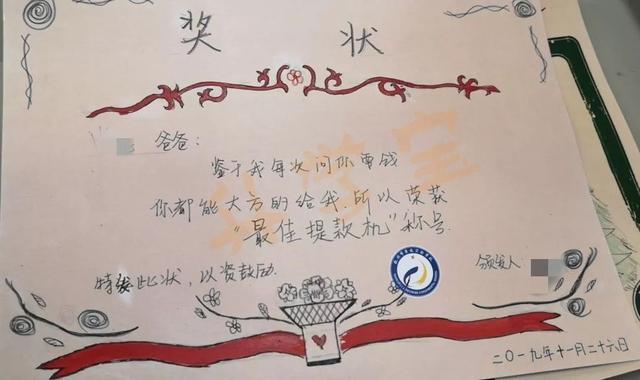 奖 状
爸爸:
鉴于我每次问你要钱
你都能大方的给我.所以荣获
“最佳提款机”称号.
特发此状，以资鼓励.
颁发人:
二〇一九年十一月二十六日